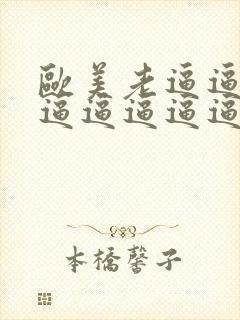 欧美老逼逼
逼逼逼逼逼
本橋馨子